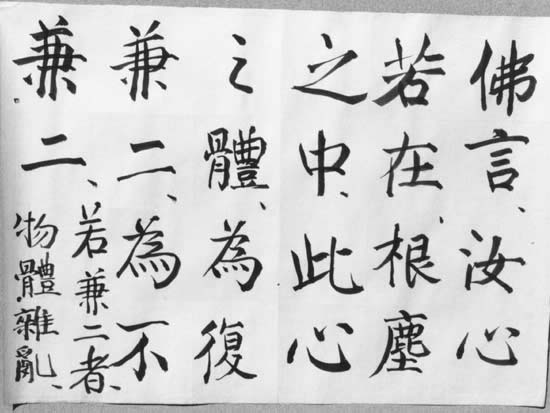 佛言、汝心
若在、根塵
之中、此心
之體、為復
兼二、為不
兼二、
若兼二者、
物體雜亂、